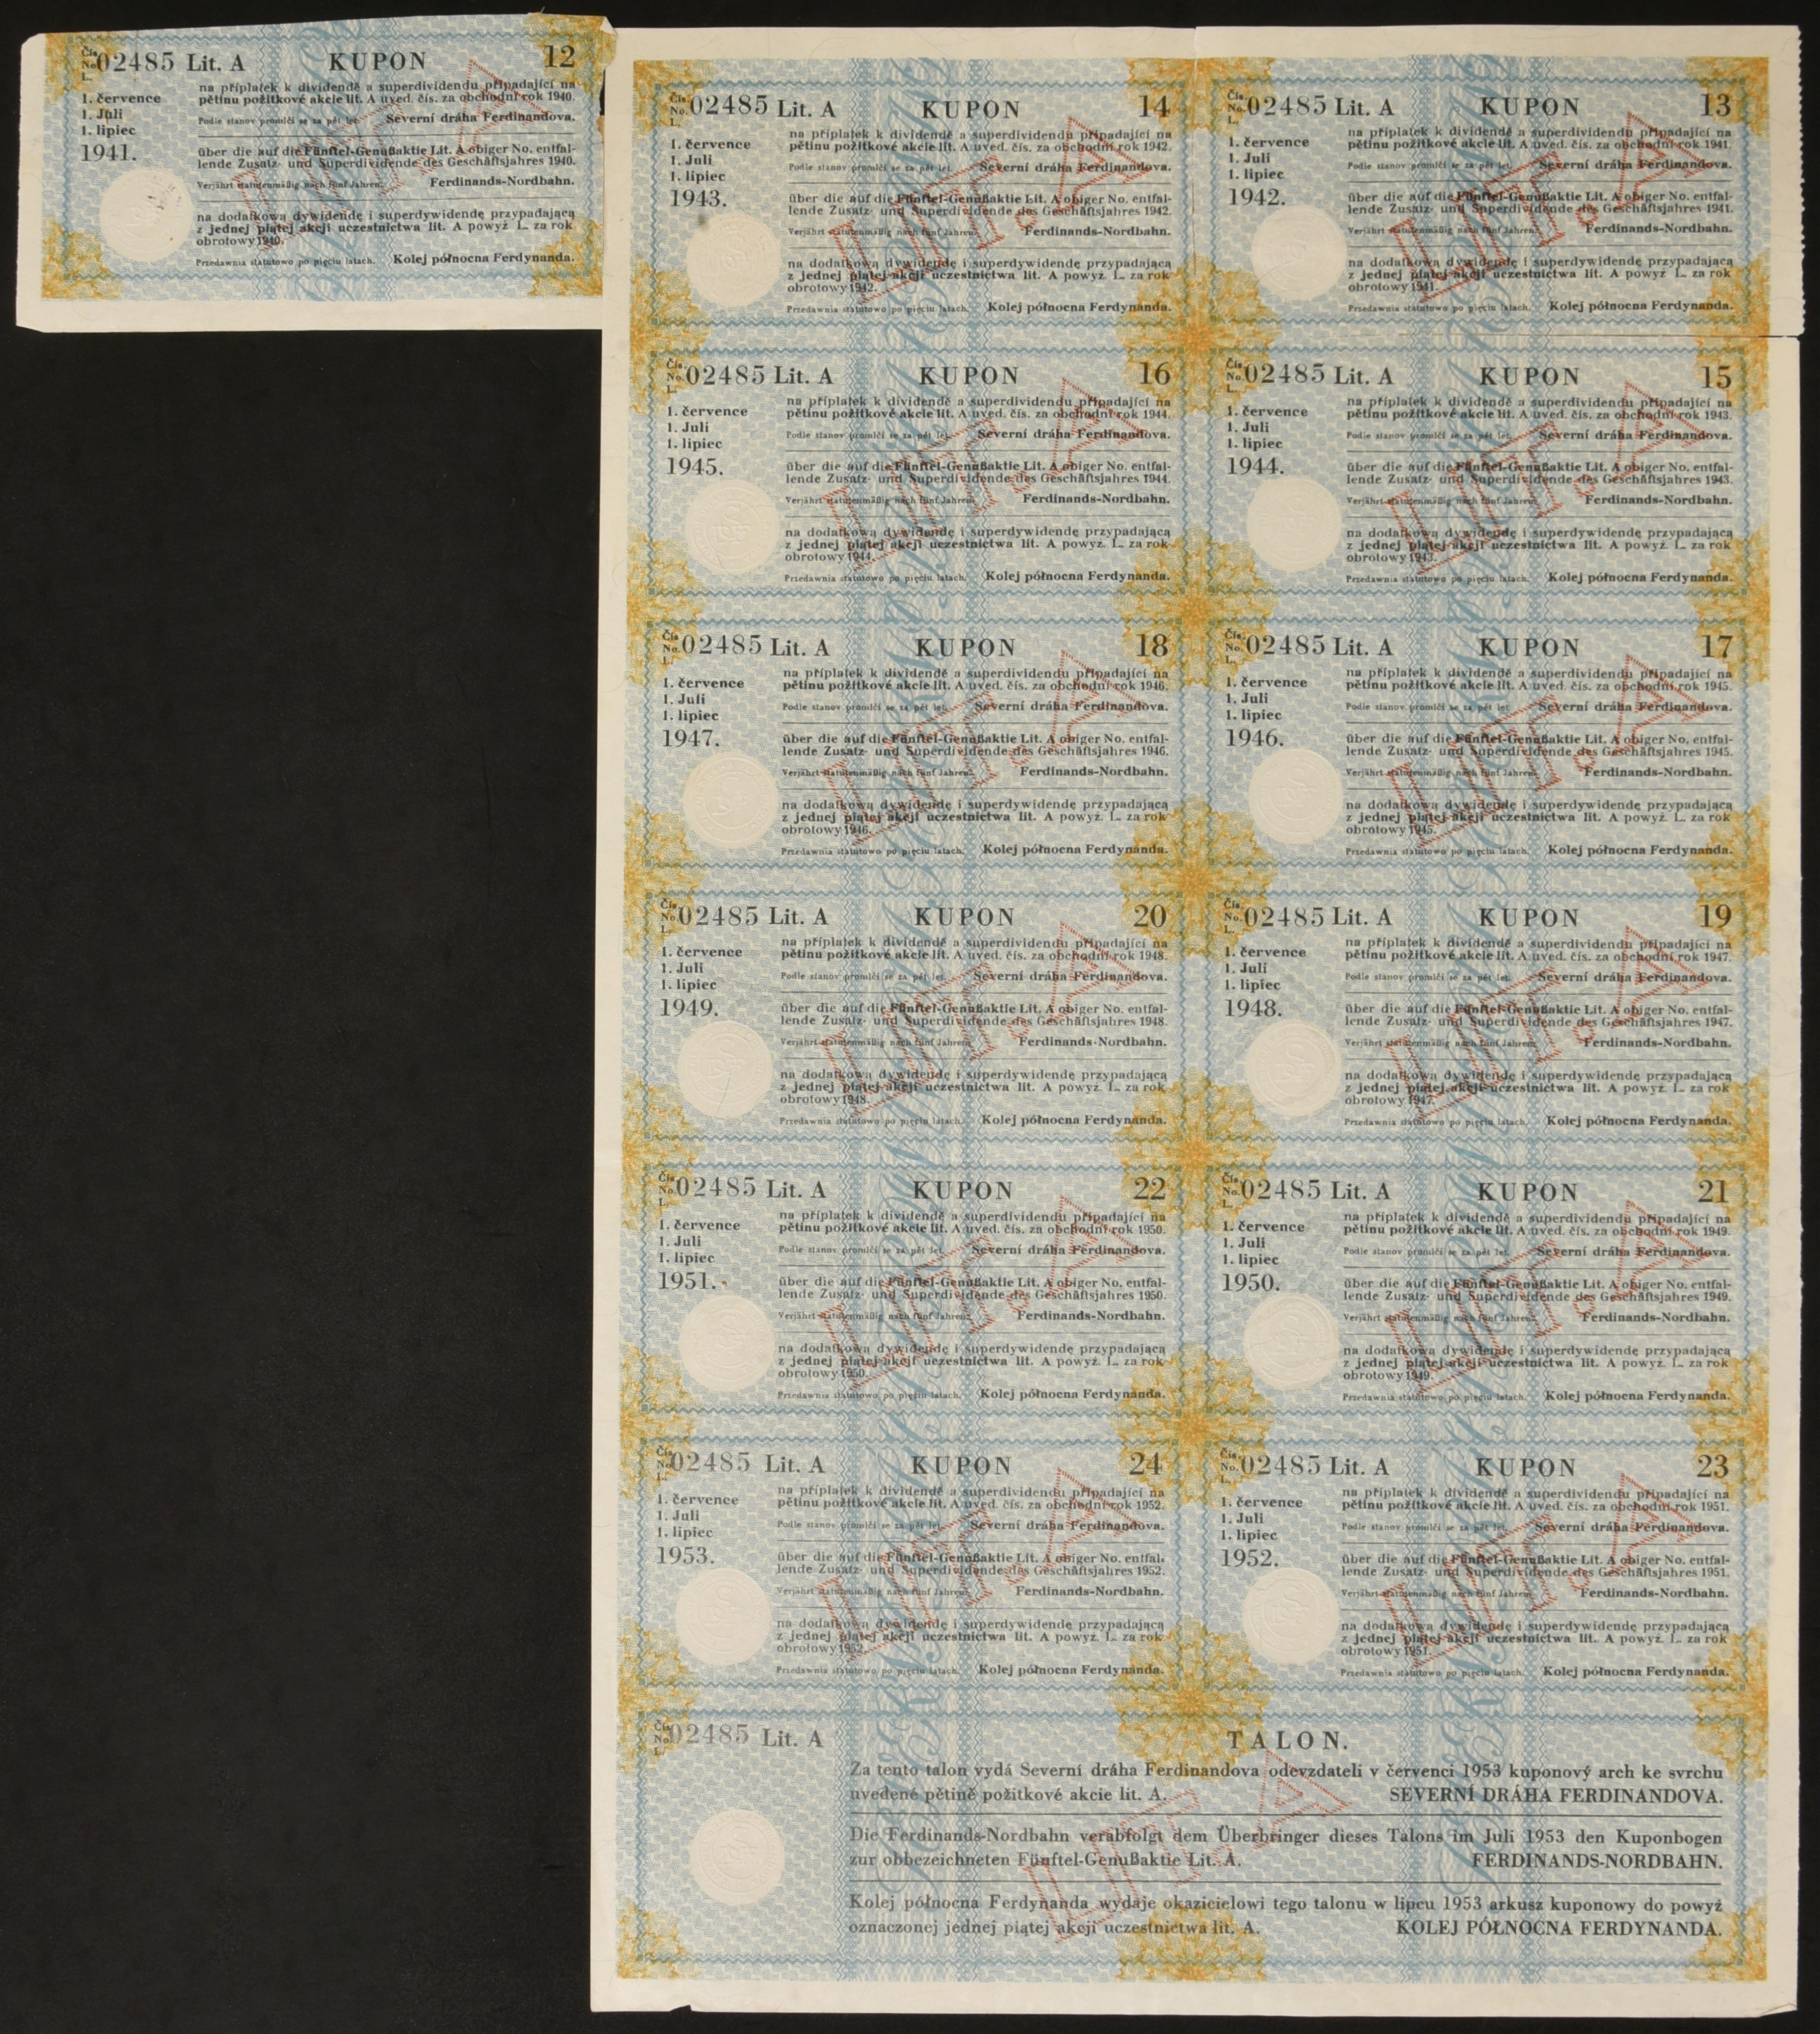 Čís.
No. 02485 Lit. A KUPON 12
L.
1. července
1. Juli
1. lipiec
1941.
na příplatek k dividendě a superdividendu připadající na
pětinu požitkové akcie lit. A uved. čís. za obchodní rok 1940.
Podle stanov promlčí se za pět let. Severní dráha Ferdinandova.
über die auf die Fünftel-Genußaktie Lit. A obiger No. entfal-
lende Zusatz- und Superdividende des Geschäftsjahres 1940.
Verjährt statutenmäßig nach fünf Jahren. Ferdinands-Nordbahn.
na dodatkową dywidendę i superdywidendę przypadającą
z jednej piątej akcji uczestnictwa lit. A powyż. L. za rok
obrotowy 1940.
Przedawnia statutowo po pięciu latach. Kolej północna Ferdynanda.
LIT. A
Čís.
No. 02485 Lit. A KUPON 14
L.
1. července
1. Juli
1. lipiec
1943.
na příplatek k dividendě a superdividendu připadající na
pětinu požitkové akcie lit. A uved. čís. za obchodní rok 1942.
Podle stanov promlčí se za pět let. Severní dráha Ferdinandova.
über die auf die Fünftel-Genußaktie Lit. A obiger No. entfal-
lende Zusatz- und Superdividende des Geschäftsjahres 1942.
Verjährt statutenmäßig nach fünf Jahren. Ferdinands-Nordbahn.
na dodatkową dywidendę i superdywidendę przypadającą
z jednej piątej akcji uczestnictwa lit. A powyż. L. za rok
obrotowy 1942.
Przedawnia statutowo po pięciu latach. Kolej północna Ferdynanda.
LIT. A
Čís.
No. 02485 Lit. A KUPON 13
L.
1. července
1. Juli
1. lipiec
1942.
na příplatek k dividendě a superdividendu připadající na
pětinu požitkové akcie lit. A uved. čís. za obchodní rok 1941.
Podle stanov promlčí se za pět let. Severní dráha Ferdinandova.
über die auf die Fünftel-Genußaktie Lit. A obiger No. entfal-
lende Zusatz- und Superdividende des Geschäftsjahres 1941.
Verjährt statutenmäßig nach fünf Jahren. Ferdinands-Nordbahn.
na dodatkową dywidendę i superdywidendę przypadającą
z jednej piątej akcji uczestnictwa lit. A powyż. L. za rok
obrotowy 1941.
Przedawnia statutowo po pięciu latach. Kolej północna Ferdynanda.
LIT. A
Čís.
No. 02485 Lit. A KUPON 16
L.
1. července
1. Juli
1. lipiec
1945.
na příplatek k dividendě a superdividendu připadající na
pětinu požitkové akcie lit. A uved. čís. za obchodní rok 1944.
Podle stanov promlčí se za pět let. Severní dráha Ferdinandova.
über die auf die Fünftel-Genußaktie Lit. A obiger No. entfal-
lende Zusatz- und Superdividende des Geschäftsjahres 1944.
Verjährt statutenmäßig nach fünf Jahren. Ferdinands-Nordbahn.
na dodatkową dywidendę i superdywidendę przypadającą
z jednej piątej akcji uczestnictwa lit. A powyż. L. za rok
obrotowy 1944.
Przedawnia statutowo po pięciu latach. Kolej północna Ferdynanda.
LIT. A
Čís.
No. 02485 Lit. A KUPON 15
L.
1. července
1. Juli
1. lipiec
1944.
na příplatek k dividendě a superdividendu připadající na
pětinu požitkové akcie lit. A uved. čís. za obchodní rok 1943.
Podle stanov promlčí se za pět let. Severní dráha Ferdinandova.
über die auf die Fünftel-Genußaktie Lit. A obiger No. entfal-
lende Zusatz- und Superdividende des Geschäftsjahres 1943.
Verjährt statutenmäßig nach fünf Jahren. Ferdinands-Nordbahn.
na dodatkową dywidendę i superdywidendę przypadającą
z jednej piątej akcji uczestnictwa lit. A powyż. L. za rok
obrotowy 1943.
Przedawnia statutowo po pięciu latach. Kolej północna Ferdynanda.
LIT. A
Čís.
No. 02485 Lit. A KUPON 18
L.
1. července
1. Juli
1. lipiec
1947.
na příplatek k dividendě a superdividendu připadající na
pětinu požitkové akcie lit. A uved. čís. za obchodní rok 1946.
Podle stanov promlčí se za pět let. Severní dráha Ferdinandova.
über die auf die Fünftel-Genußaktie Lit. A obiger No. entfal-
lende Zusatz- und Superdividende des Geschäftsjahres 1946.
Verjährt statutenmäßig nach fünf Jahren. Ferdinands-Nordbahn.
na dodatkową dywidendę i superdywidendę przypadającą
z jednej piątej akcji uczestnictwa lit. A powyż. L. za rok
obrotowy 1946.
Przedawnia statutowo po pięciu latach. Kolej północna Ferdynanda.
LIT. A
Čís.
No. 02485 Lit. A KUPON 17
L.
1. července
1. Juli
1. lipiec
1946.
na příplatek k dividendě a superdividendu připadající na
pětinu požitkové akcie lit. A uved. čís. za obchodní rok 1945.
Podle stanov promlčí se za pět let. Severní dráha Ferdinandova.
über die auf die Fünftel-Genußaktie Lit. A obiger No. entfal-
lende Zusatz- und Superdividende des Geschäftsjahres 1945.
Verjährt statutenmäßig nach fünf Jahren. Ferdinands-Nordbahn.
na dodatkową dywidendę i superdywidendę przypadającą
z jednej piątej akcji uczestnictwa lit. A powyż. L. za rok
obrotowy 1945.
Przedawnia statutowo po pięciu latach. Kolej północna Ferdynanda.
LIT. A
Čís.
No. 02485 Lit. A KUPON 20
L.
1. července
1. Juli
1. lipiec
1949.
na příplatek k dividendě a superdividendu připadající na
pětinu požitkové akcie lit. A uved. čís. za obchodní rok 1948.
Podle stanov promlčí se za pět let. Severní dráha Ferdinandova.
über die auf die Fünftel-Genußaktie Lit. A obiger No. entfal-
lende Zusatz- und Superdividende des Geschäftsjahres 1948.
Verjährt statutenmäßig nach fünf Jahren. Ferdinands-Nordbahn.
na dodatkową dywidendę i superdywidendę przypadającą
z jednej piątej akcji uczestnictwa lit. A powyż. L. za rok
obrotowy 1948.
Przedawnia statutowo po pięciu latach. Kolej północna Ferdynanda.
LIT. A
Čís.
No. 02485 Lit. A KUPON 19
L.
1. července
1. Juli
1. lipiec
1948.
na příplatek k dividendě a superdividendu připadající na
pětinu požitkové akcie lit. A uved. čís. za obchodní rok 1947.
Podle stanov promlčí se za pět let. Severní dráha Ferdinandova.
über die auf die Fünftel-Genußaktie Lit. A obiger No. entfal-
lende Zusatz- und Superdividende des Geschäftsjahres 1947.
Verjährt statutenmäßig nach fünf Jahren. Ferdinands-Nordbahn.
na dodatkową dywidendę i superdywidendę przypadającą
z jednej piątej akcji uczestnictwa lit. A powyż. L. za rok
obrotowy 1947.
Przedawnia statutowo po pięciu latach. Kolej północna Ferdynanda.
LIT. A
Čís.
No. 02485 Lit. A KUPON 22
L.
1. července
1. Juli
1. lipiec
1951.
na příplatek k dividendě a superdividendu připadající na
pětinu požitkové akcie lit. A uved. čís. za obchodní rok 1950.
Podle stanov promlčí se za pět let. Severní dráha Ferdinandova.
über die auf die Fünftel-Genußaktie Lit. A obiger No. entfal-
lende Zusatz- und Superdividende des Geschäftsjahres 1950.
Verjährt statutenmäßig nach fünf Jahren. Ferdinands-Nordbahn.
na dodatkową dywidendę i superdywidendę przypadającą
z jednej piątej akcji uczestnictwa lit. A powyż. L. za rok
obrotowy 1950.
Przedawnia statutowo po pięciu latach. Kolej północna Ferdynanda.
LIT. A
Čís.
No. 02485 Lit. A KUPON 21
L.
1. července
1. Juli
1. lipiec
1950.
na příplatek k dividendě a superdividendu připadající na
pětinu požitkové akcie lit. A uved. čís. za obchodní rok 1949.
Podle stanov promlčí se za pět let. Severní dráha Ferdinandova.
über die auf die Fünftel-Genußaktie Lit. A obiger No. entfal-
lende Zusatz- und Superdividende des Geschäftsjahres 1949.
Verjährt statutenmäßig nach fünf Jahren. Ferdinands-Nordbahn.
na dodatkową dywidendę i superdywidendę przypadającą
z jednej piątej akcji uczestnictwa lit. A powyż. L. za rok
obrotowy 1949.
Przedawnia statutowo po pięciu latach. Kolej północna Ferdynanda.
LIT. A
Čís.
No. 02485 Lit. A KUPON 24
L.
1. července
1. Juli
1. lipiec
1953.
na příplatek k dividendě a superdividendu připadající na
pětinu požitkové akcie lit. A uved. čís. za obchodní rok 1952.
Podle stanov promlčí se za pět let. Severní dráha Ferdinandova.
über die auf die Fünftel-Genußaktie Lit. A obiger No. entfal-
lende Zusatz- und Superdividende des Geschäftsjahres 1952.
Verjährt statutenmäßig nach fünf Jahren. Ferdinands-Nordbahn.
na dodatkową dywidendę i superdywidendę przypadającą
z jednej piątej akcji uczestnictwa lit. A powyż. L. za rok
obrotowy 1952.
Przedawnia statutowo po pięciu latach. Kolej północna Ferdynanda.
LIT. A
Čís.
No. 02485 Lit. A KUPON 23
L.
1. července
1. Juli
1. lipiec
1952.
na příplatek k dividendě a superdividendu připadající na
pětinu požitkové akcie lit. A uved. čís. za obchodní rok 1951.
Podle stanov promlčí se za pět let. Severní dráha Ferdinandova.
über die auf die Fünftel-Genußaktie Lit. A obiger No. entfal-
lende Zusatz- und Superdividende des Geschäftsjahres 1951.
Verjährt statutenmäßig nach fünf Jahren. Ferdinands-Nordbahn.
na dodatkową dywidendę i superdywidendę przypadającą
z jednej piątej akcji uczestnictwa lit. A powyż. L. za rok
obrotowy 1951.
Przedawnia statutowo po pięciu latach. Kolej północna Ferdynanda.
LIT. A
Čís.
No. 02485 Lit. A TALON.
L.
Za tento talon vydá Severní dráha Ferdinandova odevzdateli v červenci 1953 kuponový arch ke svrchu
uvedené pětině požitkové akcie lit. A. SEVERNÍ DRÁHA FERDINANDOVA.
Die Ferdinands-Nordbahn verabfolgt dem Überbringer dieses Talons im Juli 1953 den Kuponbogen
zur obbezeichneten Fünftel-Genußaktie Lit. A. FERDINANDS-NORDBAHN.
Kolej północna Ferdynanda wydaje okazicielowi tego talonu w lipcu 1953 arkusz kuponowy do powyż
oznaczonej jednej piątej akcji uczestnictwa lit. A. KOLEJ PÓŁNOCNA FERDYNANDA.
LIT. A